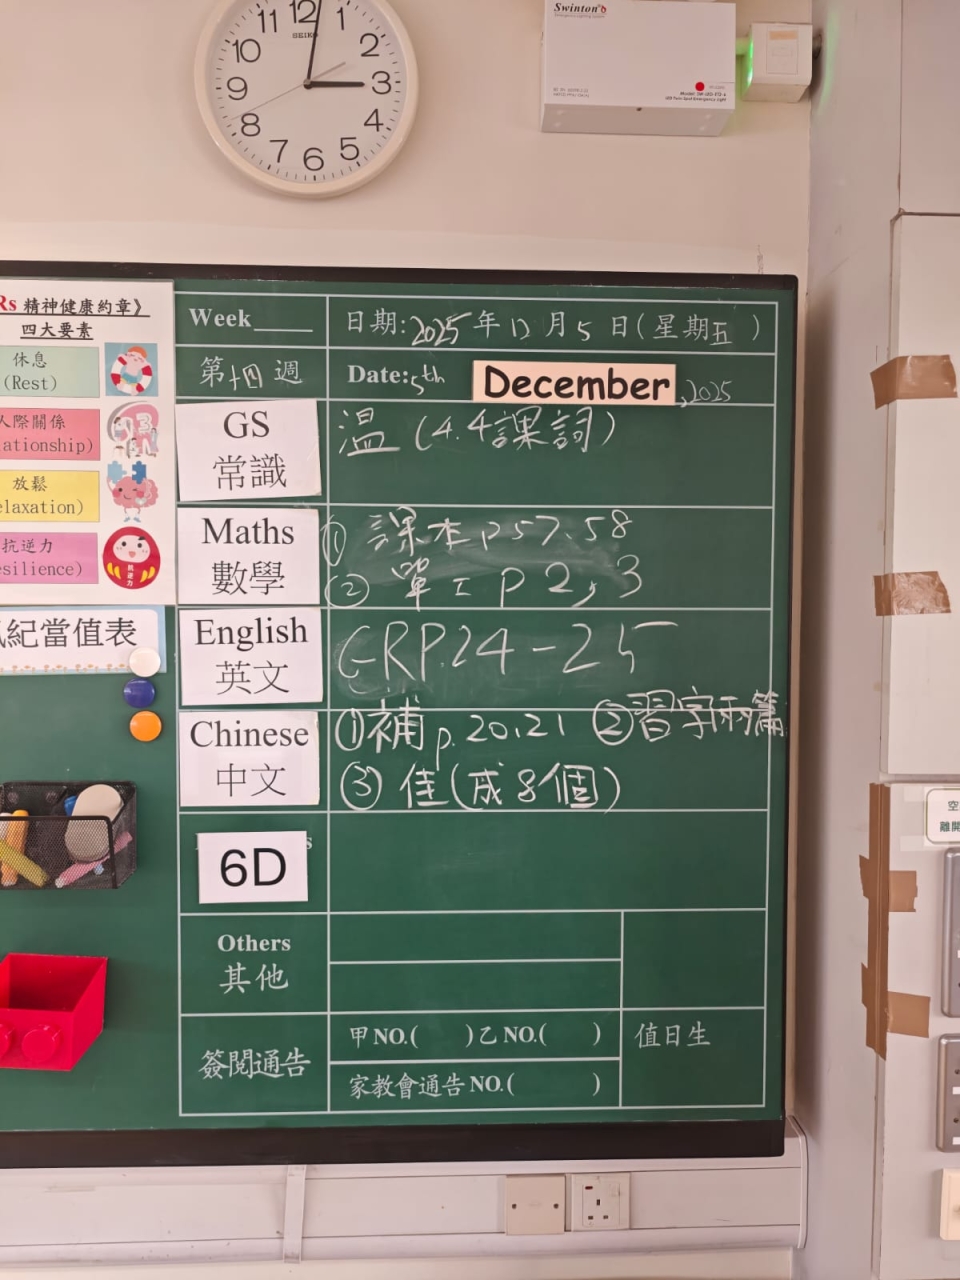 11 12 1
10 2
9 3
8 4
7 6 5
SEIKO
Swinton
Emergency Lighting System
Rs 精神健康約章》
四大要素
休息
(Rest)
人際關係
ationship)
放鬆
elaxation)
抗逆力
esilience)
抗逆力
紀當值表
Week____ 日期:2025年12月5日(星期五)
第十四週 Date:5th December,2025
GS
常識
溫(4.4課詞)
Maths
數學
① 課本p57.58
② 單工 p 2,3
English
英文
GRP.24-25
Chinese
中文
①補p.20,21 ②習字兩篇
③ 佳(成8個)
6D
Others
其他
簽閱通告
甲NO.( )乙NO.( )
家教會通告NO.( )
值日生
空
離開